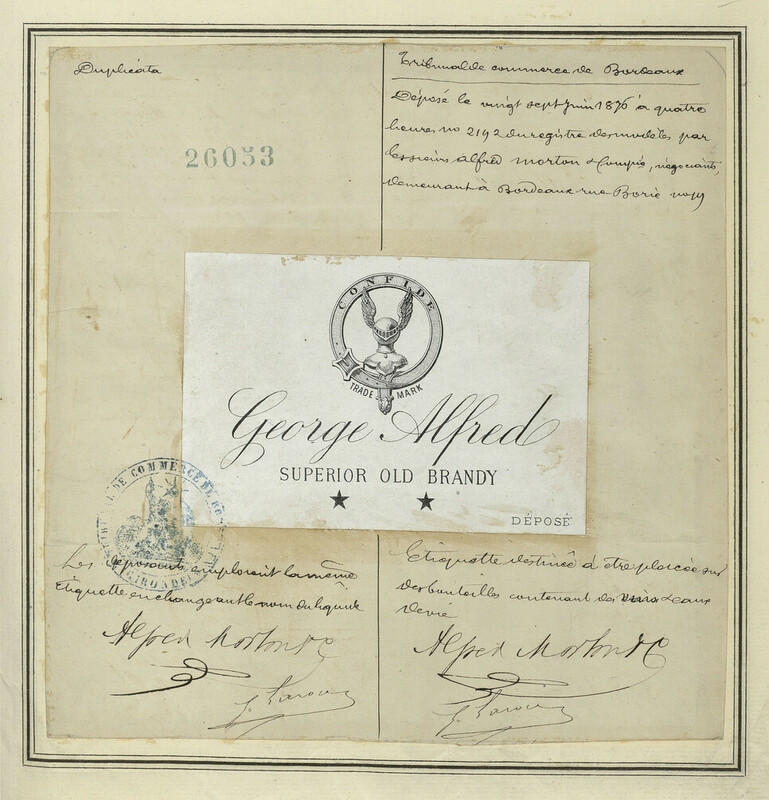 Duplicata
26053
Tribunal de commerce de Bordeaux
Déposé le vingt sept Juin 1876 à quatre
heures no 2192 du registre des modèles par
les sieurs Alfred Morton & Compie, négociants,
demeurant à Bordeaux rue Borie no 19
CONFIDE
TRADE MARK
George Alfred
SUPERIOR OLD BRANDY
DÉPOSÉ
DE COMMERCE DE
GIRONDE
Les déposants emploient la même
étiquette en changeant le nom du liquide
Alfred Morton & C
Etiquette destinée à etre placée sur
des bouteilles contenant des vins & eaux
devie
Alfred Morton & C